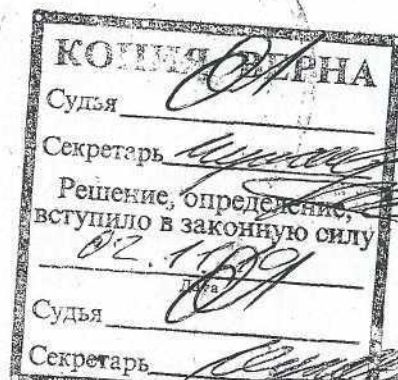 КОПИЯ ВЕРНА
Судья
Секретарь
Решение, определение,
вступило в законную силу
02.11.
Дата
Судья
Секретарь